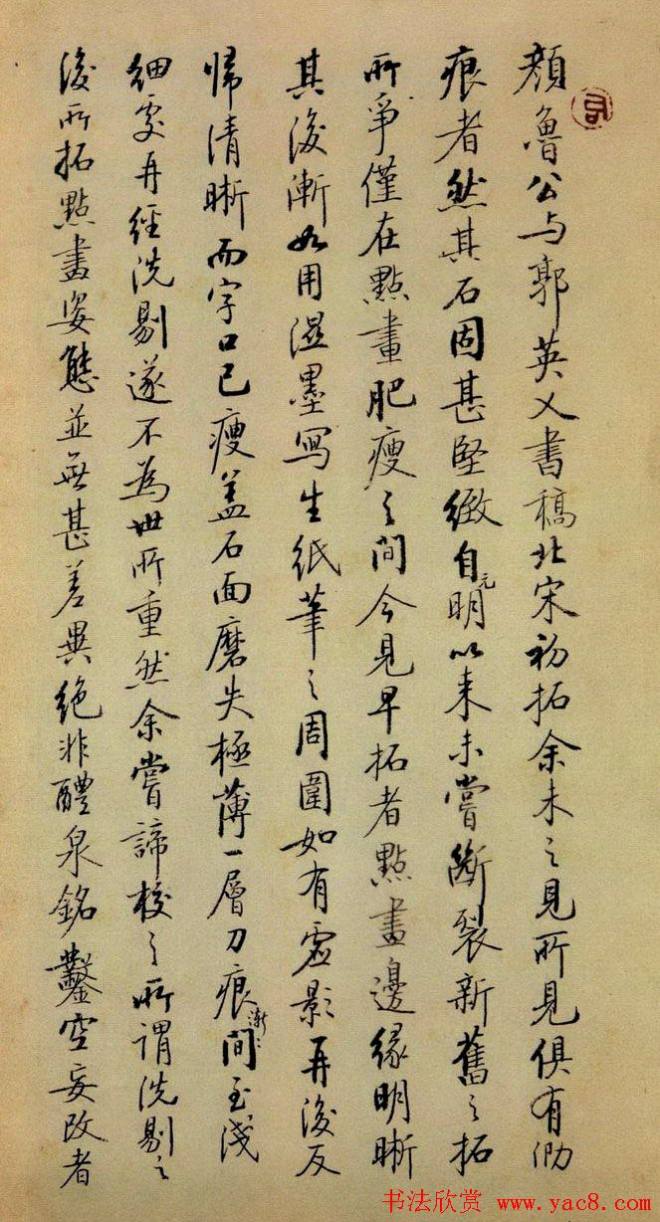 顏魯公与郭英乂書稿北宋初拓余未之見所見俱有泐
痕者然其石固甚堅緻自元明以来未嘗斷裂新舊之拓
所爭僅在點畫肥瘦之間今見早拓者點畫邊緣明晰
其後漸如用溼墨寫生紙筆之周圍如有虛影再後反
歸清晰而字口已瘦盖石面磨失極薄一層刀痕漸漸間至淺
細處再經洗剔遂不為世所重然余嘗諦校之所謂洗剔之
後所拓點畫姿態並無甚差異絕非醴泉銘鑿空妄改者
书法欣赏 www.yac8.com